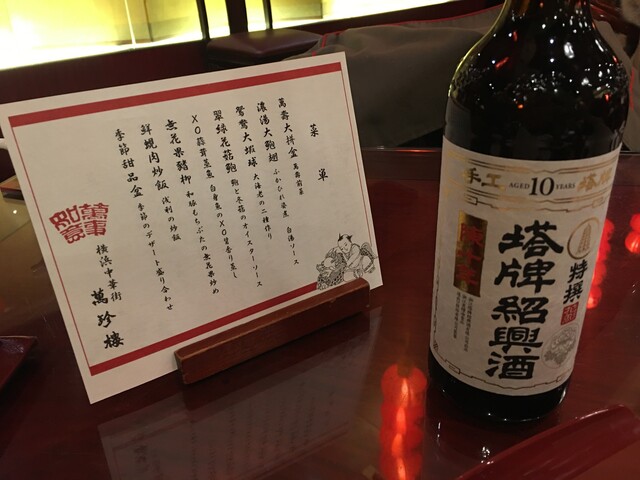 菜單
萬壽大拼盆 萬壽前菜
濃湯大鮑翅 ふかひれ姿煮 白湯ソース
鴛鴦大蝦球 大海老の二種作り
翠緑花菇鮑 鮑と冬菇のオイスターソース
XO蒜茸蒸魚 白身魚のXO醤香り蒸し
無花果豬柳 和豚もちぶたの無花果炒め
鮮蜆肉炒飯 浅利の炒飯
季節甜品盒 季節のデザート盛り合わせ
萬事如意
横浜中華街 萬珍樓
手工 AGED 10 YEARS 塔牌
塔牌紹興酒
特撰